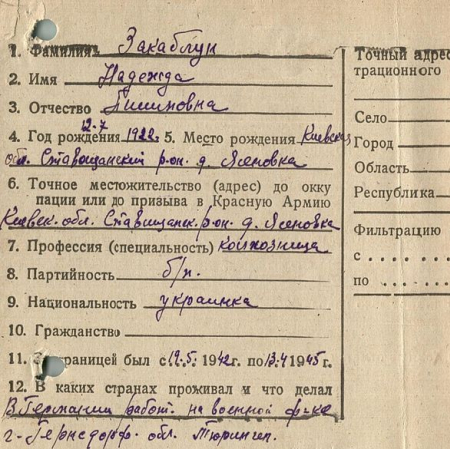 1. Фамилия Закаблун
2. Имя Надежда
3. Отчество Пимновна
12-7
4. Год рождения 1922. 5. Место рождения Киевская
обл. Ставищанский р-он. д. Ясеновка
6. Точное местожительство (адрес) до окку
пации или до призыва в Красную Армию
Киевск. обл. Ставищанск. р-он. д. Ясеновка
7. Профессия (специальность) колхозница
8. Партийность б/п.
9. Национальность украинка
10. Гражданство
11. За границей был с 19.5. 1942 г. по 13.4 1945 г.
12. В каких странах проживал и что делал
В Германии работ. на военной ф-ке
г. обл. Тюринген.
Точный адрес
трационного
Село
Город
Область
Республика
Фильтрацию
с
по